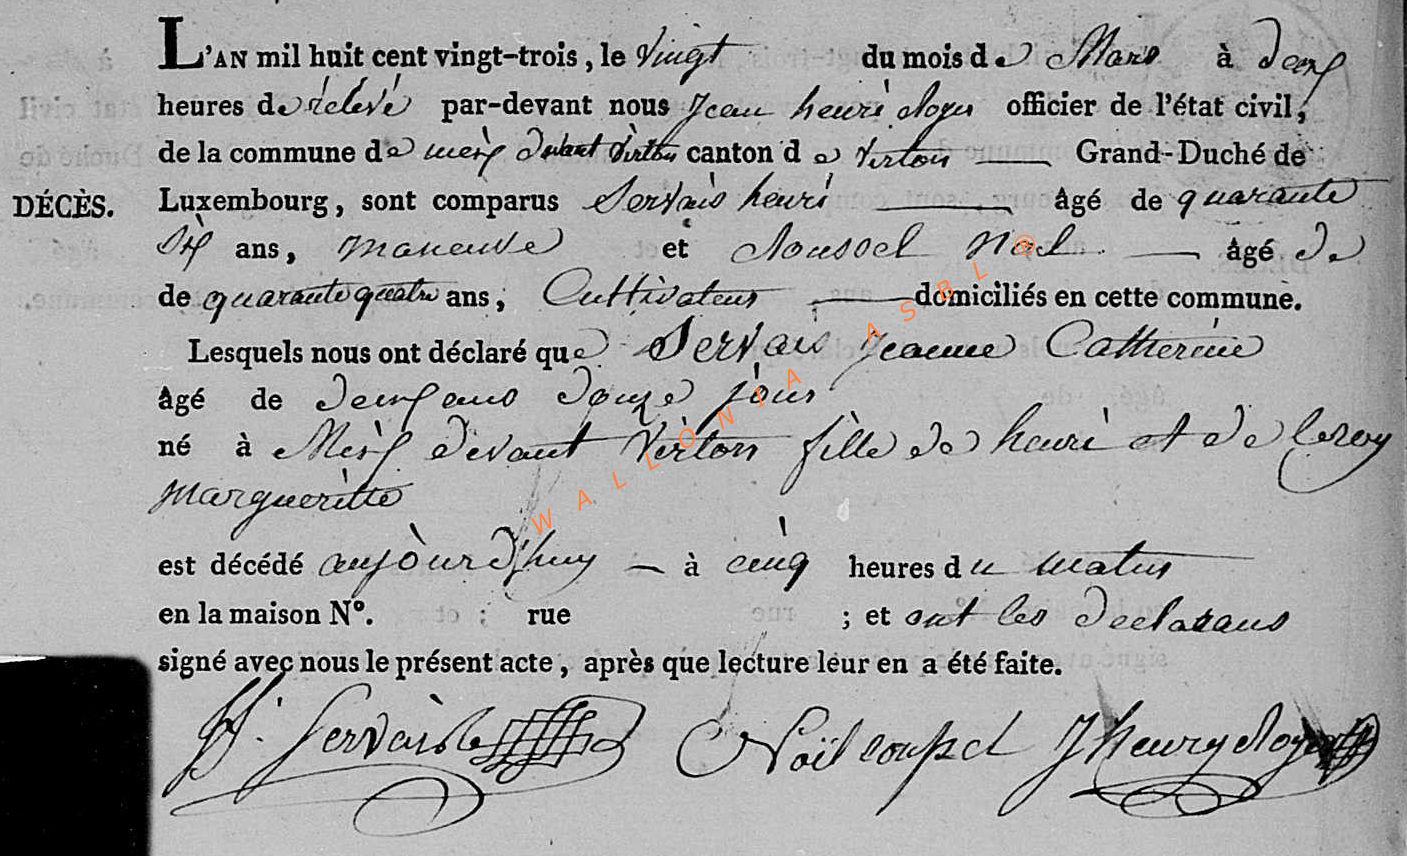 L'AN mil huit cent vingt-trois, le vingt du mois de Mars à deux
heures de rélevé par-devant nous Jean henri officier de l'état civil,
de la commune de meix devant Virton canton de virton Grand-Duché de
DÉCÈS. Luxembourg, sont comparus Servais henri âgé de quarante
six ans, maneuvre et Noel âgé de
de quarante quatre ans, Cultivateur domiciliés en cette commune.
Lesquels nous ont déclaré que Servais Jeanne Catherine
âgé de deux ans douze jour
né à Meix devant Virton fille de henri et de Leroy
Margueritte
est décédé aujourd'huy à cinq heures du matin
en la maison N°. ; rue ; et ont les declarans
signé avec nous le présent acte, après que lecture leur en a été faite.
H. Servais Noël J henry
WALLONIA ASBL @